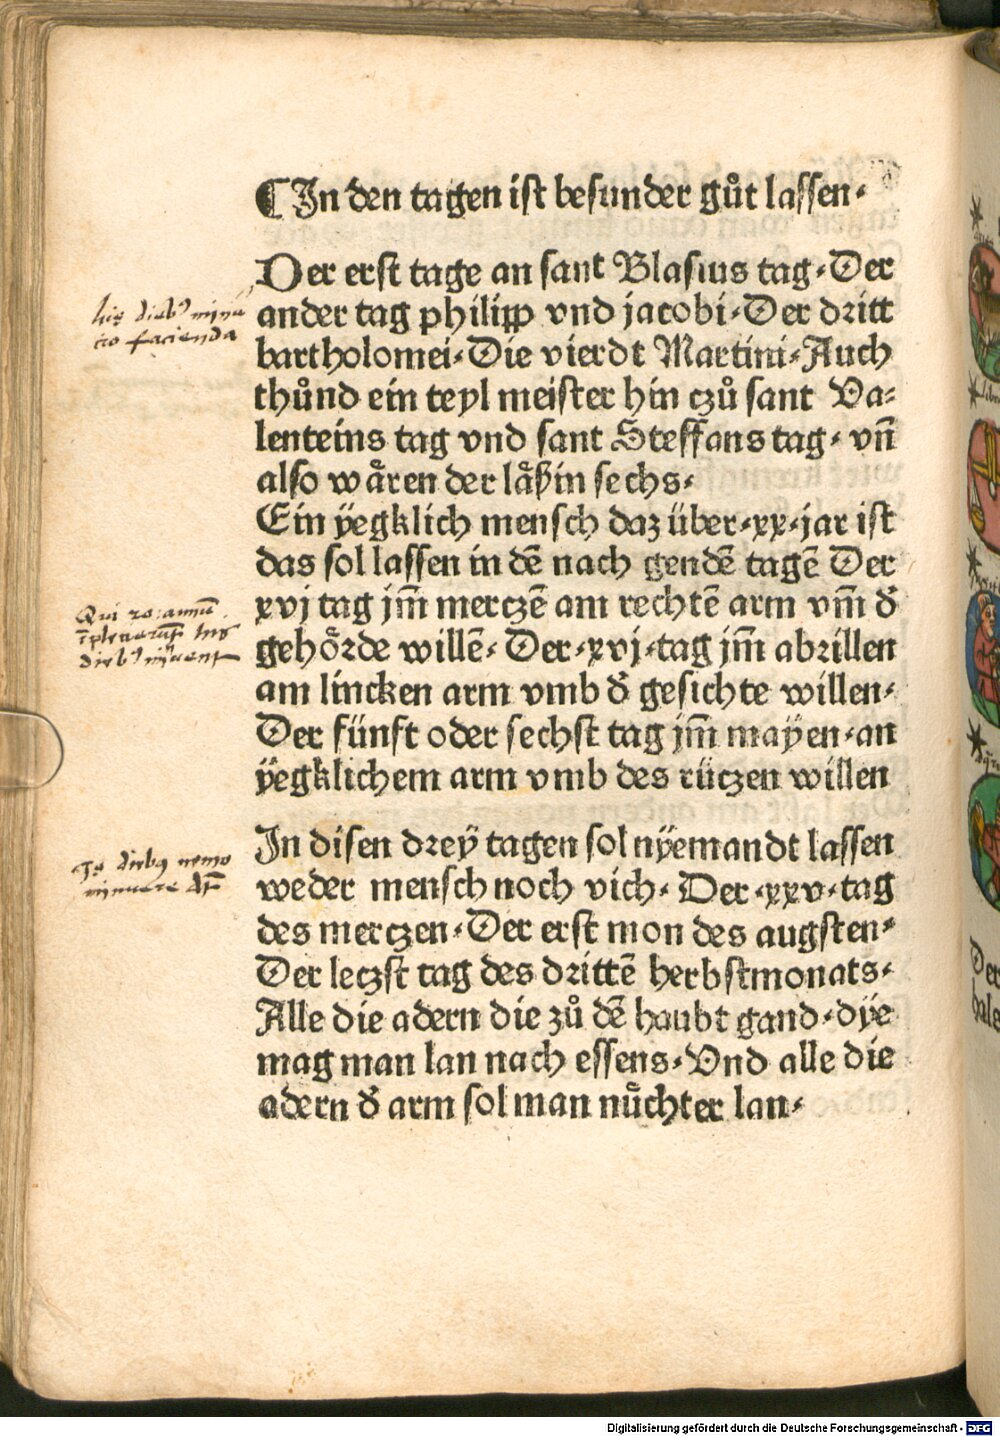 ¶ In den tagen ist besunder gůt lassen·
Der erst tage an sant Blasius tag·Der
ander tag philipp vnd jacobi·Der dritt
bartholomei·Die vierdt Martini·Auch
thůnd ein teyl meister hin czů sant Va⸗
lenteins tag vnd sant Steffans tag· vn̄
also wåren der låßin sechs·
Ein ÿegklich mensch daz über·xx·jar ist
das sol lassen in dē nach gendē tagē Der
xvj tag jm̄ merczē am rechtē arm vm̄ d̓
gehȯ̈rde willē· Der·xvj·tag jm̄ abrillen
am lincken arm vmb d̓ gesichte willen·
Der fünft oder sechst tag jm̄ maÿen·an
ÿegklichem arm vmb des rützen willen
In disen dreÿ tagen sol nÿemandt lassen
weder mensch noch vich· Der·xxv·tag
des merczen·Der erst mon des augsten·
Der leczst tag des drittē herbstmonats·
Alle die adern die zů dē haubt gand·dÿe
mag man lan nach essens·Vnd alle die
adern d̓ arm sol man nůchter lan·
his dieb⁹ minu
tio facienda
Qui 20 annū
diebus
diebus nemo
minuere
Der
Digitalisierung gefördert durch die Deutsche Forschungsgemeinschaft - DFG